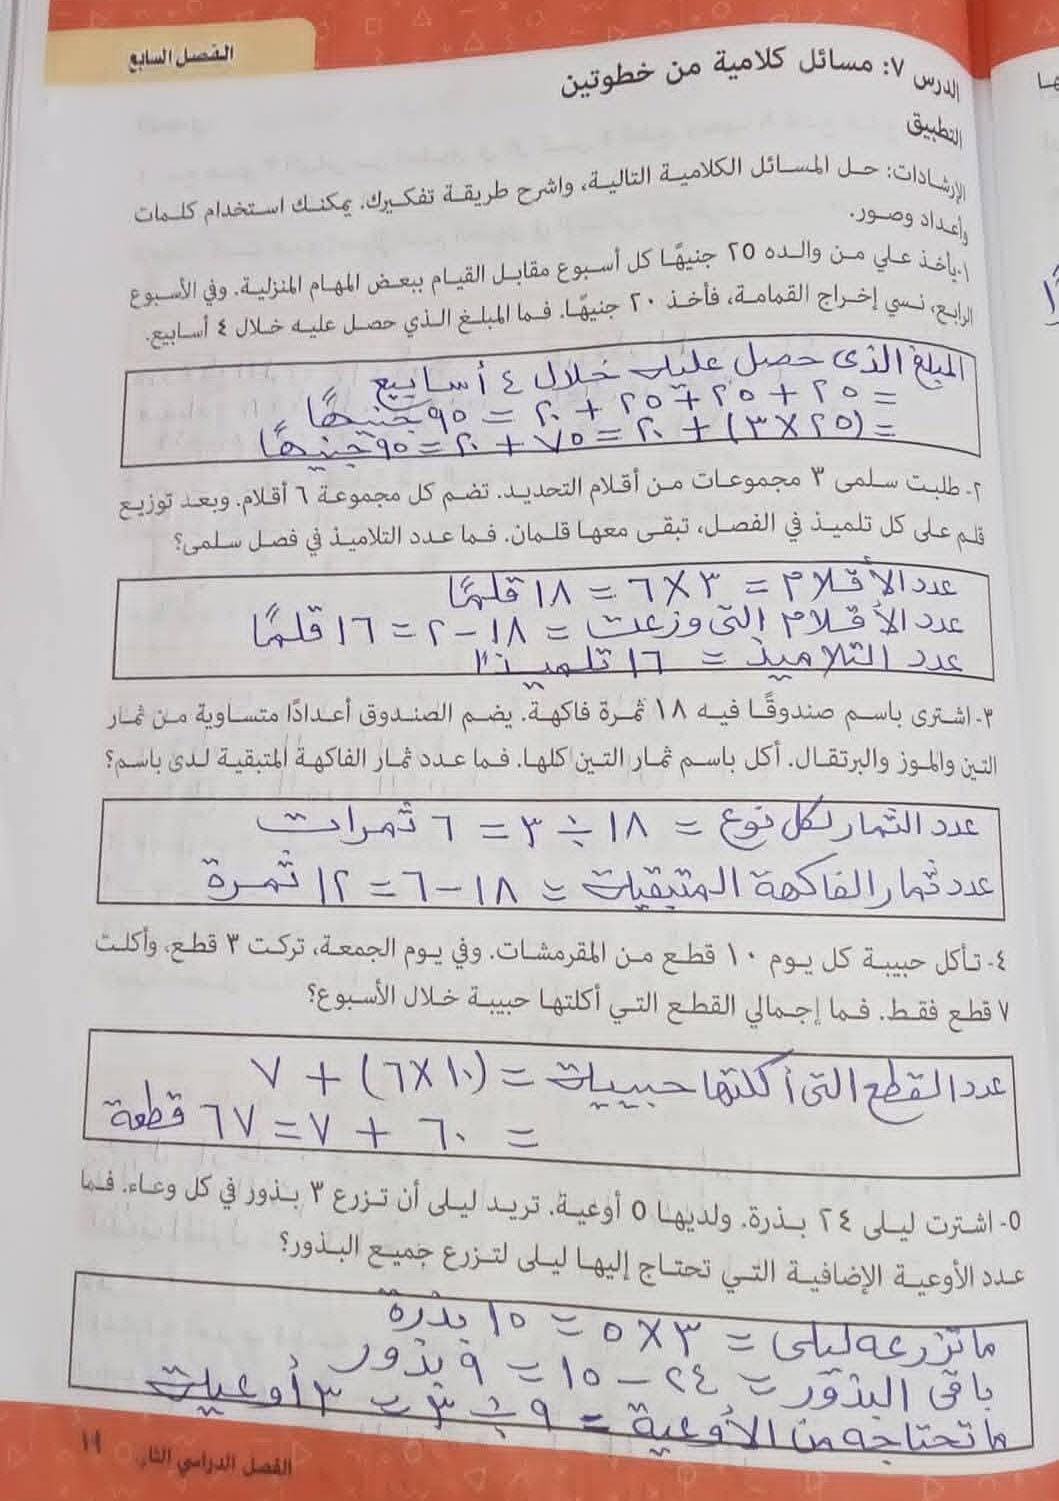 الفصل السابع
الدرس ٧: مسائل كلامية من خطوتين
التطبيق
الإرشادات: حل المسائل الكلامية التالية، واشرح طريقة تفكيرك. يمكنك استخدام كلمات
وأعداد وصور.
١- يأخذ علي من والده ٢٥ جنيهًا كل أسبوع مقابل القيام ببعض المهام المنزلية. وفي الأسبوع
الرابع، نسي إخراج القمامة، فأخذ ٢٠ جنيهًا. فما المبلغ الذي حصل عليه خلال ٤ أسابيع.
المبلغ الذى حصل عليه خلال ٤ أسابيع
= ٢٥ + ٢٥ + ٢٥ + ٢٠ = ٩٥ جنيهًا
= (٢٥ × ٣) + ٢٠ = ٧٥ + ٢٠ = ٩٥ جنيهًا
٢- طلبت سلمى ٣ مجموعات من أقلام التحديد. تضم كل مجموعة ٦ أقلام. وبعد توزيع
قلم على كل تلميذ في الفصل، تبقى معها قلمان. فما عدد التلاميذ في فصل سلمى؟
عدد الأقلام = ٣ × ٦ = ١٨ قلمًا
عدد الأقلام التى وزعت = ١٨ - ٢ = ١٦ قلمًا
عدد التلاميذ = ١٦ تلميذًا
٣- اشترى باسم صندوقًا فيه ١٨ ثمرة فاكهة. يضم الصندوق أعدادًا متساوية من ثمار
التين والموز والبرتقال. أكل باسم ثمار التين كلها. فما عدد ثمار الفاكهة المتبقية لدى باسم؟
عدد الثمار لكل نوع = ١٨ ÷ ٣ = ٦ ثمرات
عدد ثمار الفاكهة المتبقية = ١٨ - ٦ = ١٢ ثمرة
٤- تأكل حبيبة كل يوم ١٠ قطع من المقرمشات. وفي يوم الجمعة، تركت ٣ قطع، وأكلت
٧ قطع فقط. فما إجمالي القطع التي أكلتها حبيبة خلال الأسبوع؟
عدد القطع التى أكلتها حبيبة = (١٠ × ٦) + ٧
= ٦٠ + ٧ = ٦٧ قطعة
٥- اشترت ليلى ٢٤ بذرة. ولديها ٥ أوعية. تريد ليلى أن تزرع ٣ بذور في كل وعاء. فما
عدد الأوعية الإضافية التي تحتاج إليها ليلى لتزرع جميع البذور؟
ما تزرعه ليلى = ٣ × ٥ = ١٥ بذرة
باقى البذور = ٢٤ - ١٥ = ٩ بذور
ما تحتاجه من الأوعية = ٩ ÷ ٣ = ٣ أوعية
الفصل الدراسي الثاني